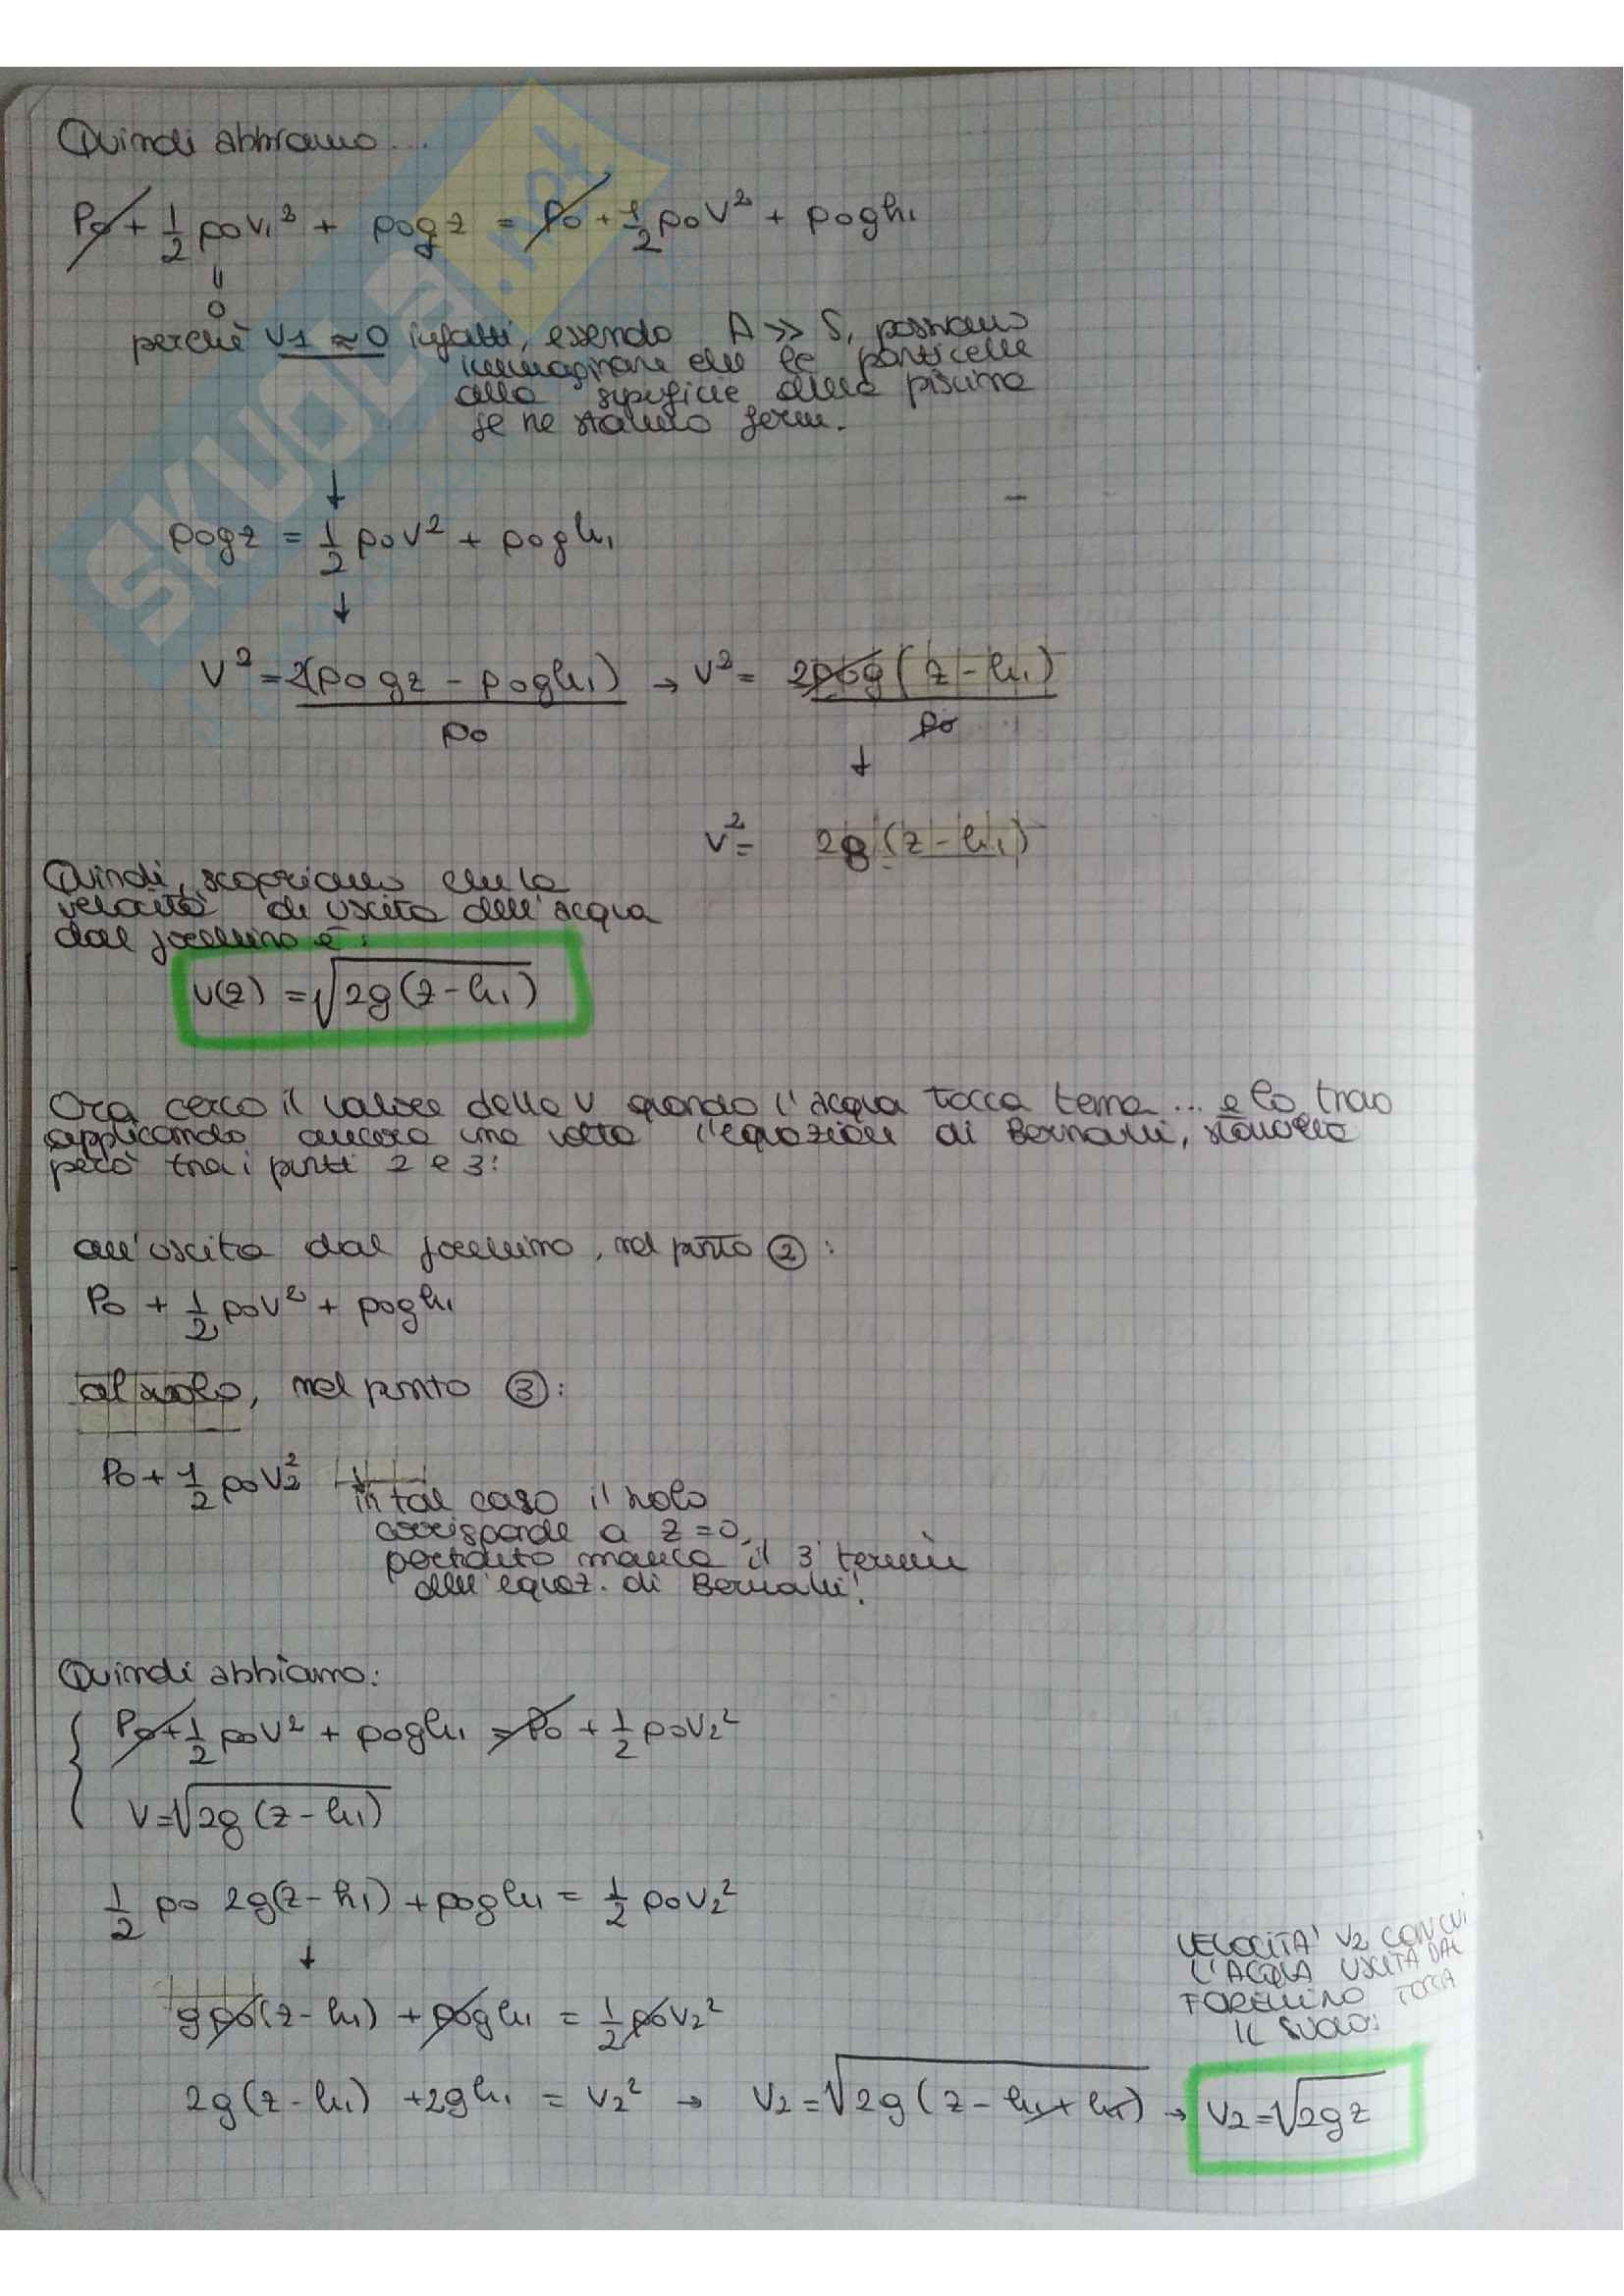 Quindi abbiamo...
P₀ + 1/2 ρ₀v₁² + ρ₀gz = P₀ + 1/2 ρ₀v² + ρ₀gh₁
"
0
perchè v1 ≈ 0 infatti, essendo A >> S, possiamo
immaginare che le particelle
alla superficie della piscina
se ne stanno ferme.
↓
ρ₀gz = 1/2 ρ₀v² + ρ₀gh₁
↓
v² = 2(ρ₀gz - ρ₀gh₁) / ρ₀ → v² = 2ρ₀g(z - h₁) / ρ₀
↓
v² = 2g(z - h₁)
Quindi, scopriamo che la
velocità di uscita dell'acqua
dal forellino è:
v(z) = √2g(z - h₁)
Ora cerco il valore della v quando l'acqua tocca terra... e lo trovo
applicando ancora una volta l'equazione di Bernoulli, stavolta
però tra i punti 2 e 3:
all'uscita dal forellino, nel punto ②:
P₀ + 1/2 ρ₀v² + ρ₀gh₁
al suolo, nel punto ③:
P₀ + 1/2 ρ₀v₂²
in tal caso il suolo
corrisponde a z = 0,
pertanto manca il 3° termine
dell'equaz. di Bernoulli!
Quindi abbiamo:
{ P₀ + 1/2 ρ₀v² + ρ₀gh₁ = P₀ + 1/2 ρ₀v₂²
v = √2g(z - h₁)
1/2 ρ₀ 2g(z - h₁) + ρ₀gh₁ = 1/2 ρ₀v₂²
↓
gρ₀(z - h₁) + ρ₀gh₁ = 1/2 ρ₀v₂²
2g(z - h₁) + 2gh₁ = v₂² → v₂ = √2g(z - h₁ + h₁) → v₂ = √2gz
VELOCITA' V₂ CON CUI
L'ACQUA USCITA DAL
FORELLINO TOCCA
IL SUOLO:
SKUOLA.net